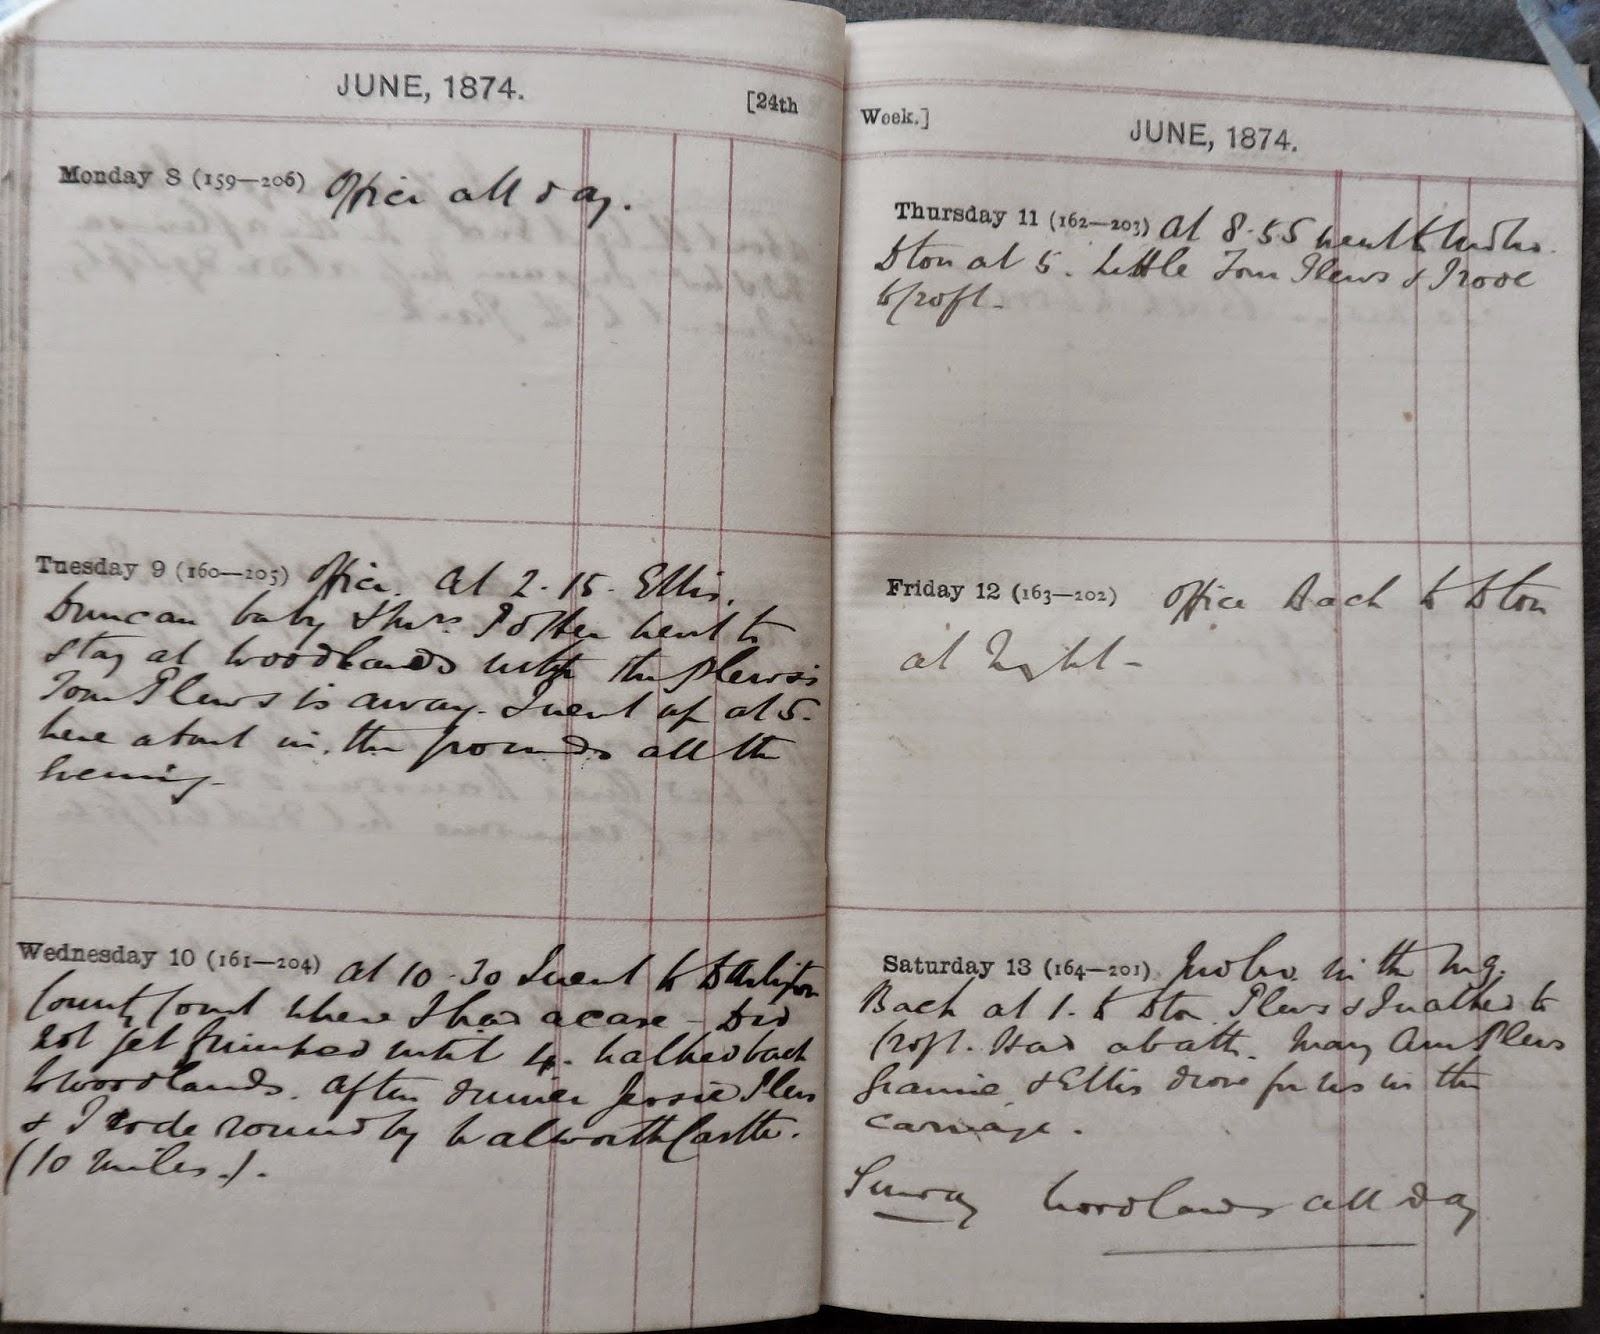 JUNE, 1874.
[24th
Monday 8 (159—206) Office all day.
Tuesday 9 (160—205) Office. At 2.15. Ellis,
Duncan baby & Mrs. Potter went to
stay at Woodlands with the Plews's
Tom Plews is away. I went up at 5.
here about in the grounds all the
Evening.
Wednesday 10 (161—204) at 10.30 I went to Darlington
County Court where I had a case — Did
not get finished until 4. Walked back
to Woodlands. After dinner Jessie Plews
& I rode round by Walworth Castle.
(10 miles.).
Week.]
JUNE, 1874.
Thursday 11 (162—203) At 8.55 went to
Dton at 5. Little Tom Plews & I rode
to Croft —
Friday 12 (163—202) Office Back to Dton
at Night —
Saturday 13 (164—201) in the mg.
Back at 1. to Dton. Plews & I walked to
Croft. Had a bath. Mary Ann Plews
& Ellis drove for us in the
carriage.
Sunday Woodlands all day